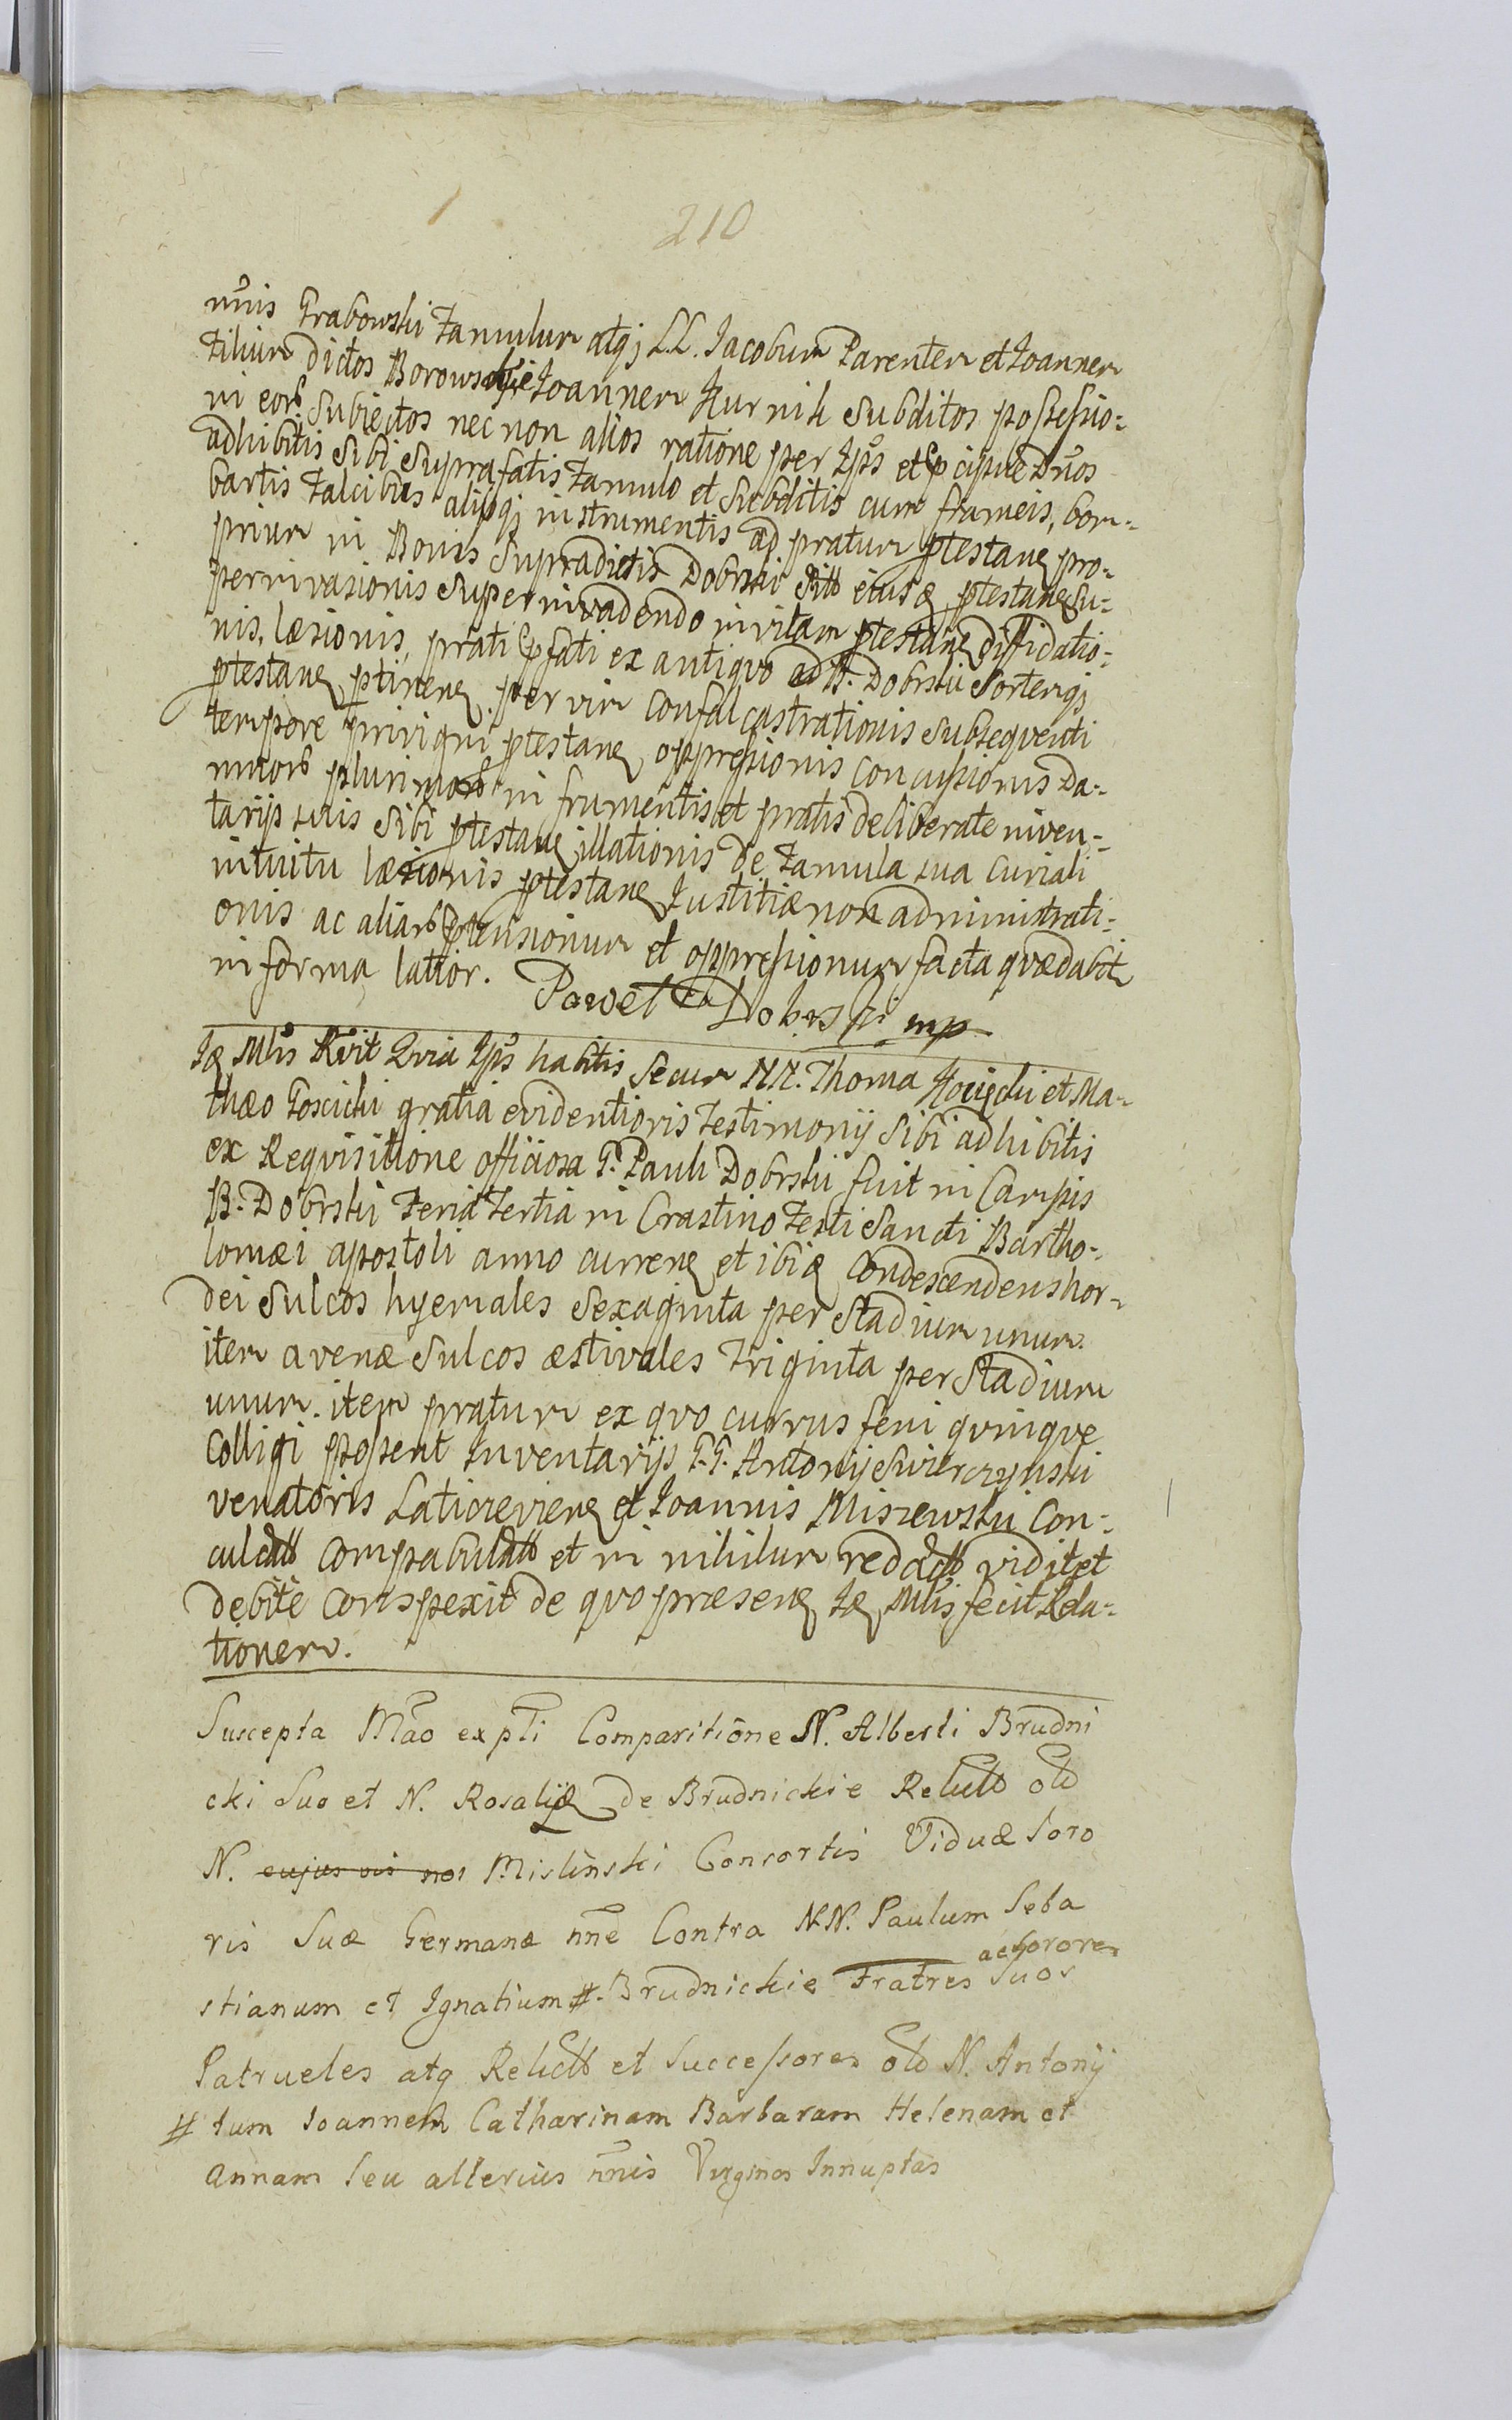 210
nnis Grabowski Famulum atqj LL. Jacobum Parentem et Joannem
Filium dictos Borowskie Joannem Kurnik Subditos possessio=
ni eorb Subiectos nec non alios ratione per Ips et pcipue Dnos
adhibitis Sibi Suprafatis Famulo et Subditis cum frameis, bom=
bartis Falcibus alijsqj instrumentis ad pratum ptestane pro=
prium in Bonis Supradictis Dobrski Sitt eiusq ptestane Su=
perinvasionis Superinvadendo invitam ptestane diffidatio=
nis, læsionis, prati pfati ex antiquo ad B. Dobrski Sortemqj
ptestane ptinene per vim Confalcastrationis Subsequenti
tempore privigni ptestane oppressionis concussionis Da=
mnorb plurimorb in frumentis et pratis deliberate inven=
tarijs suis Sibi ptestane illationis de Famula sua curiali
intuitu læsionis ptestane Justitiæ non administrati=
onis ac aliarb ptensionum et oppressionum facta qvædabit
in forma latior. Pawel Dobrski mp
Iq Mlis Rvit Qvia Ips habitis Secum NN. Thoma Kocięcki et Ma=
thæo Goscicki gratia evidentioris Testimonij Sibi adhibitis
ex Reqvisitione officiosa G. Pauli Dobrski fuit in Campis
B. Dobrski Feria Tertia in Crastino Festi Sancti Bartho=
lomæi apostoli anno currene et ibiq Condescendens hor=
dei Sulcos hyemales Sexaginta per Stadium unum.
item avenæ Sulcos æstivales Triginta per Stadium
unum. item pratum ex qvo currus feni qvinqve
Colligi possent Inventarijs G.G. Antonij Swierczynski
venatoris Laticzeviene et Joannis Miszewski Con=
culcatt compabulatt et in nihilum redactt vidit et
debite conspexit de qvo præsene Iq Mlis fecit Rela=
tionem.
Suscepta Mão ex pti Comparitione N. Alberti Brudni
cki Suo et N. Rosaliæ de Brudnickie Relictt olb
N. cujus vis nos Mislinski Consortis Viduæ Soro
ris Suæ Germanæ nne Contra NN. Paulum Seba
ac Sorores
stianum et Ignatium #. Brudnickie Fratres Suos
Patrueles atq Relictt et Successores olb N. Antonij
# tum Joannem Catharinam Barbaram Helenam et
Annam Seu alterius nnis Virgines Innuptas